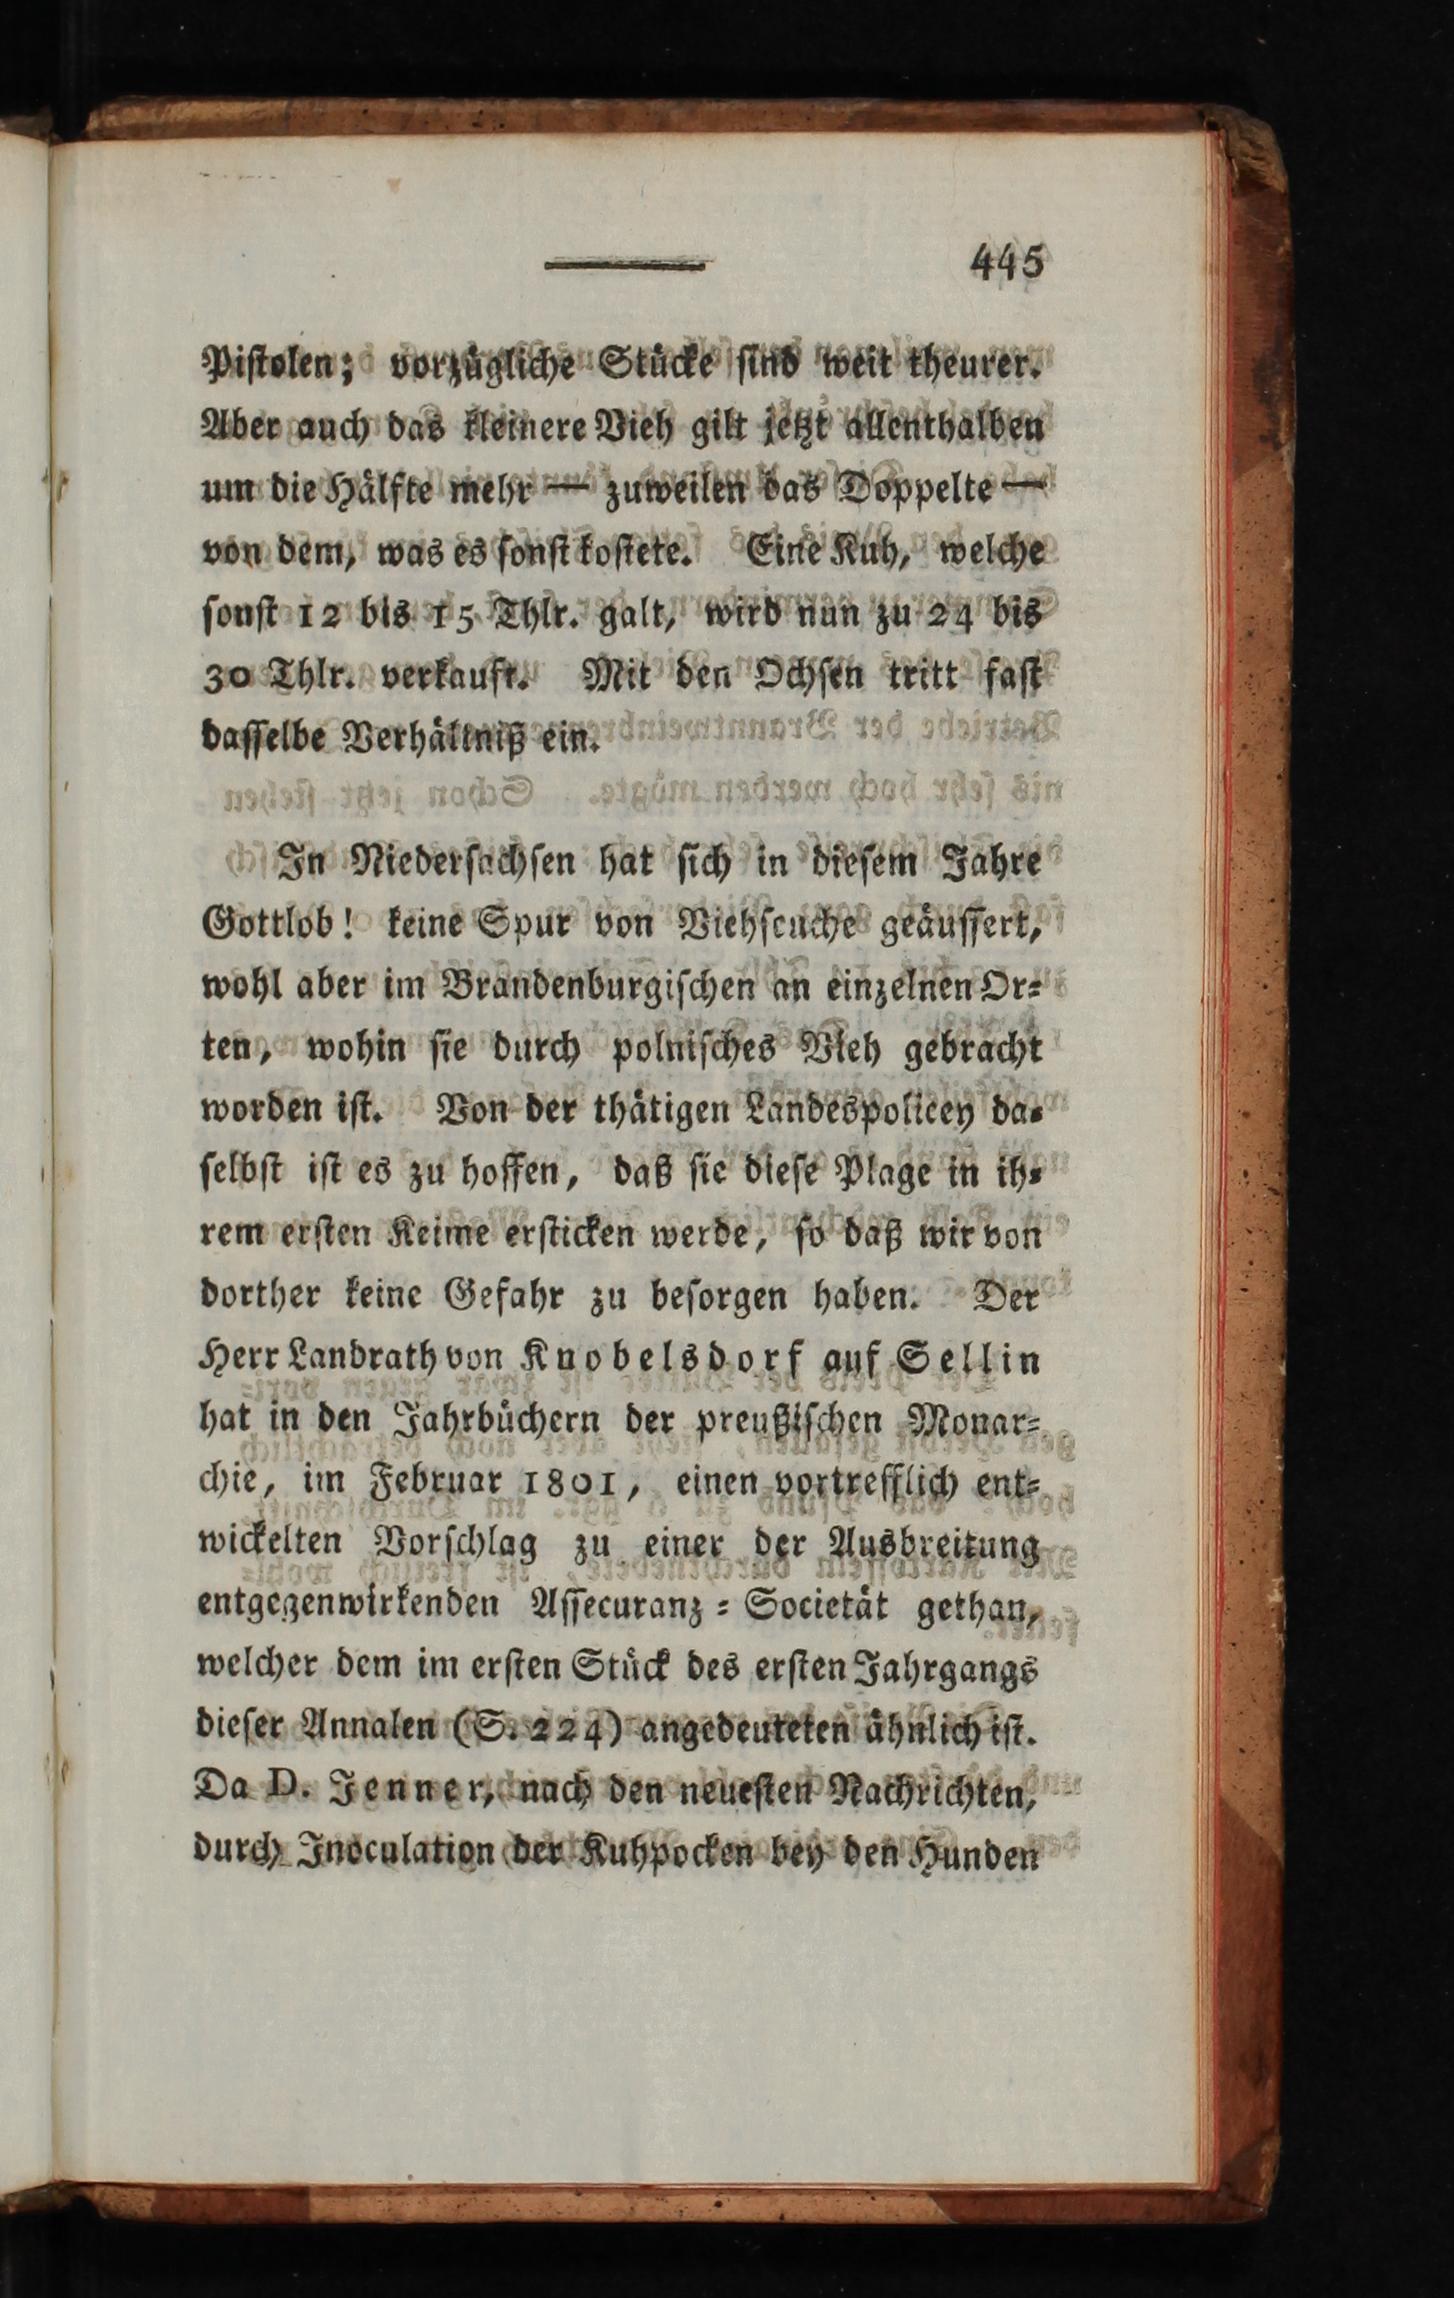 445
Pistolen; vorzügliche Stücke sind weit theurer.
Aber auch das kleinere Vieh gilt jetzt allenthalben
um die Hälfte mehr — zuweilen das Doppelte —
von dem, was es sonst kostete. Eine Kuh, welche
sonst 12 bis 15 Thlr. galt, wird nun zu 24 bis
30 Thlr. verkauft. Mit den Ochsen tritt fast
dasselbe Verhältniß ein.
In Niedersachsen hat sich in diesem Jahre
Gottlob! keine Spur von Viehseuche geäussert,
wohl aber im Brandenburgischen an einzelnen Or-
ten, wohin sie durch polnisches Vieh gebracht
worden ist. Von der thätigen Landespolicey da-
selbst ist es zu hoffen, daß sie diese Plage in ih-
rem ersten Keime ersticken werde, so daß wir von
dorther keine Gefahr zu besorgen haben. Der
Herr Landrath von Knobelsdorf auf Sellin
hat in den Jahrbüchern der preußischen Monar-
chie, im Februar 1801, einen vortrefflich ent-
wickelten Vorschlag zu einer der Ausbreitung
entgegenwirkenden Assecuranz-Societät gethan,
welcher dem im ersten Stück des ersten Jahrgangs
dieser Annalen (S. 224) angedeuteten ähnlich ist.
Da D. Jenner, nach den neuesten Nachrichten,
durch Inoculation der Kuhpocken bey den Hunden